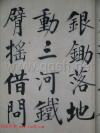 銀鋤落地
動三河鐵
臂搖借問